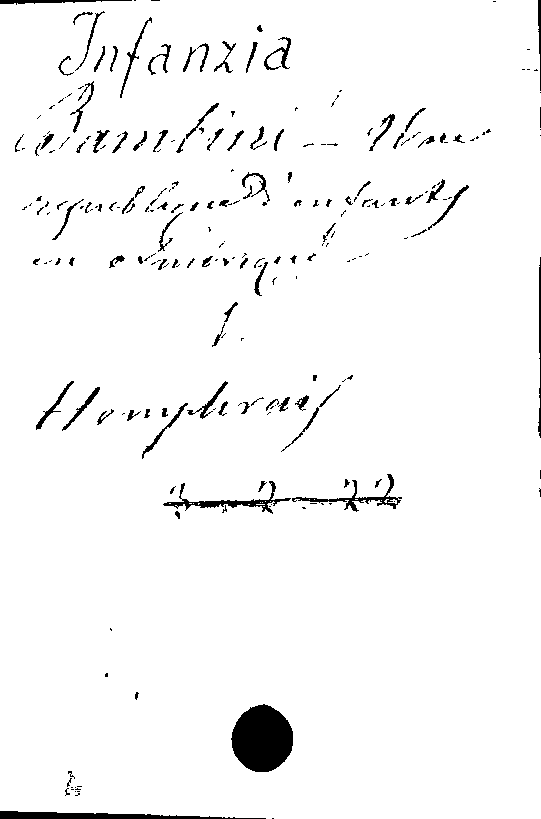 Infanzia
Bambini - Une
republique d'enfants
en Amérique -
1.
Homphrais